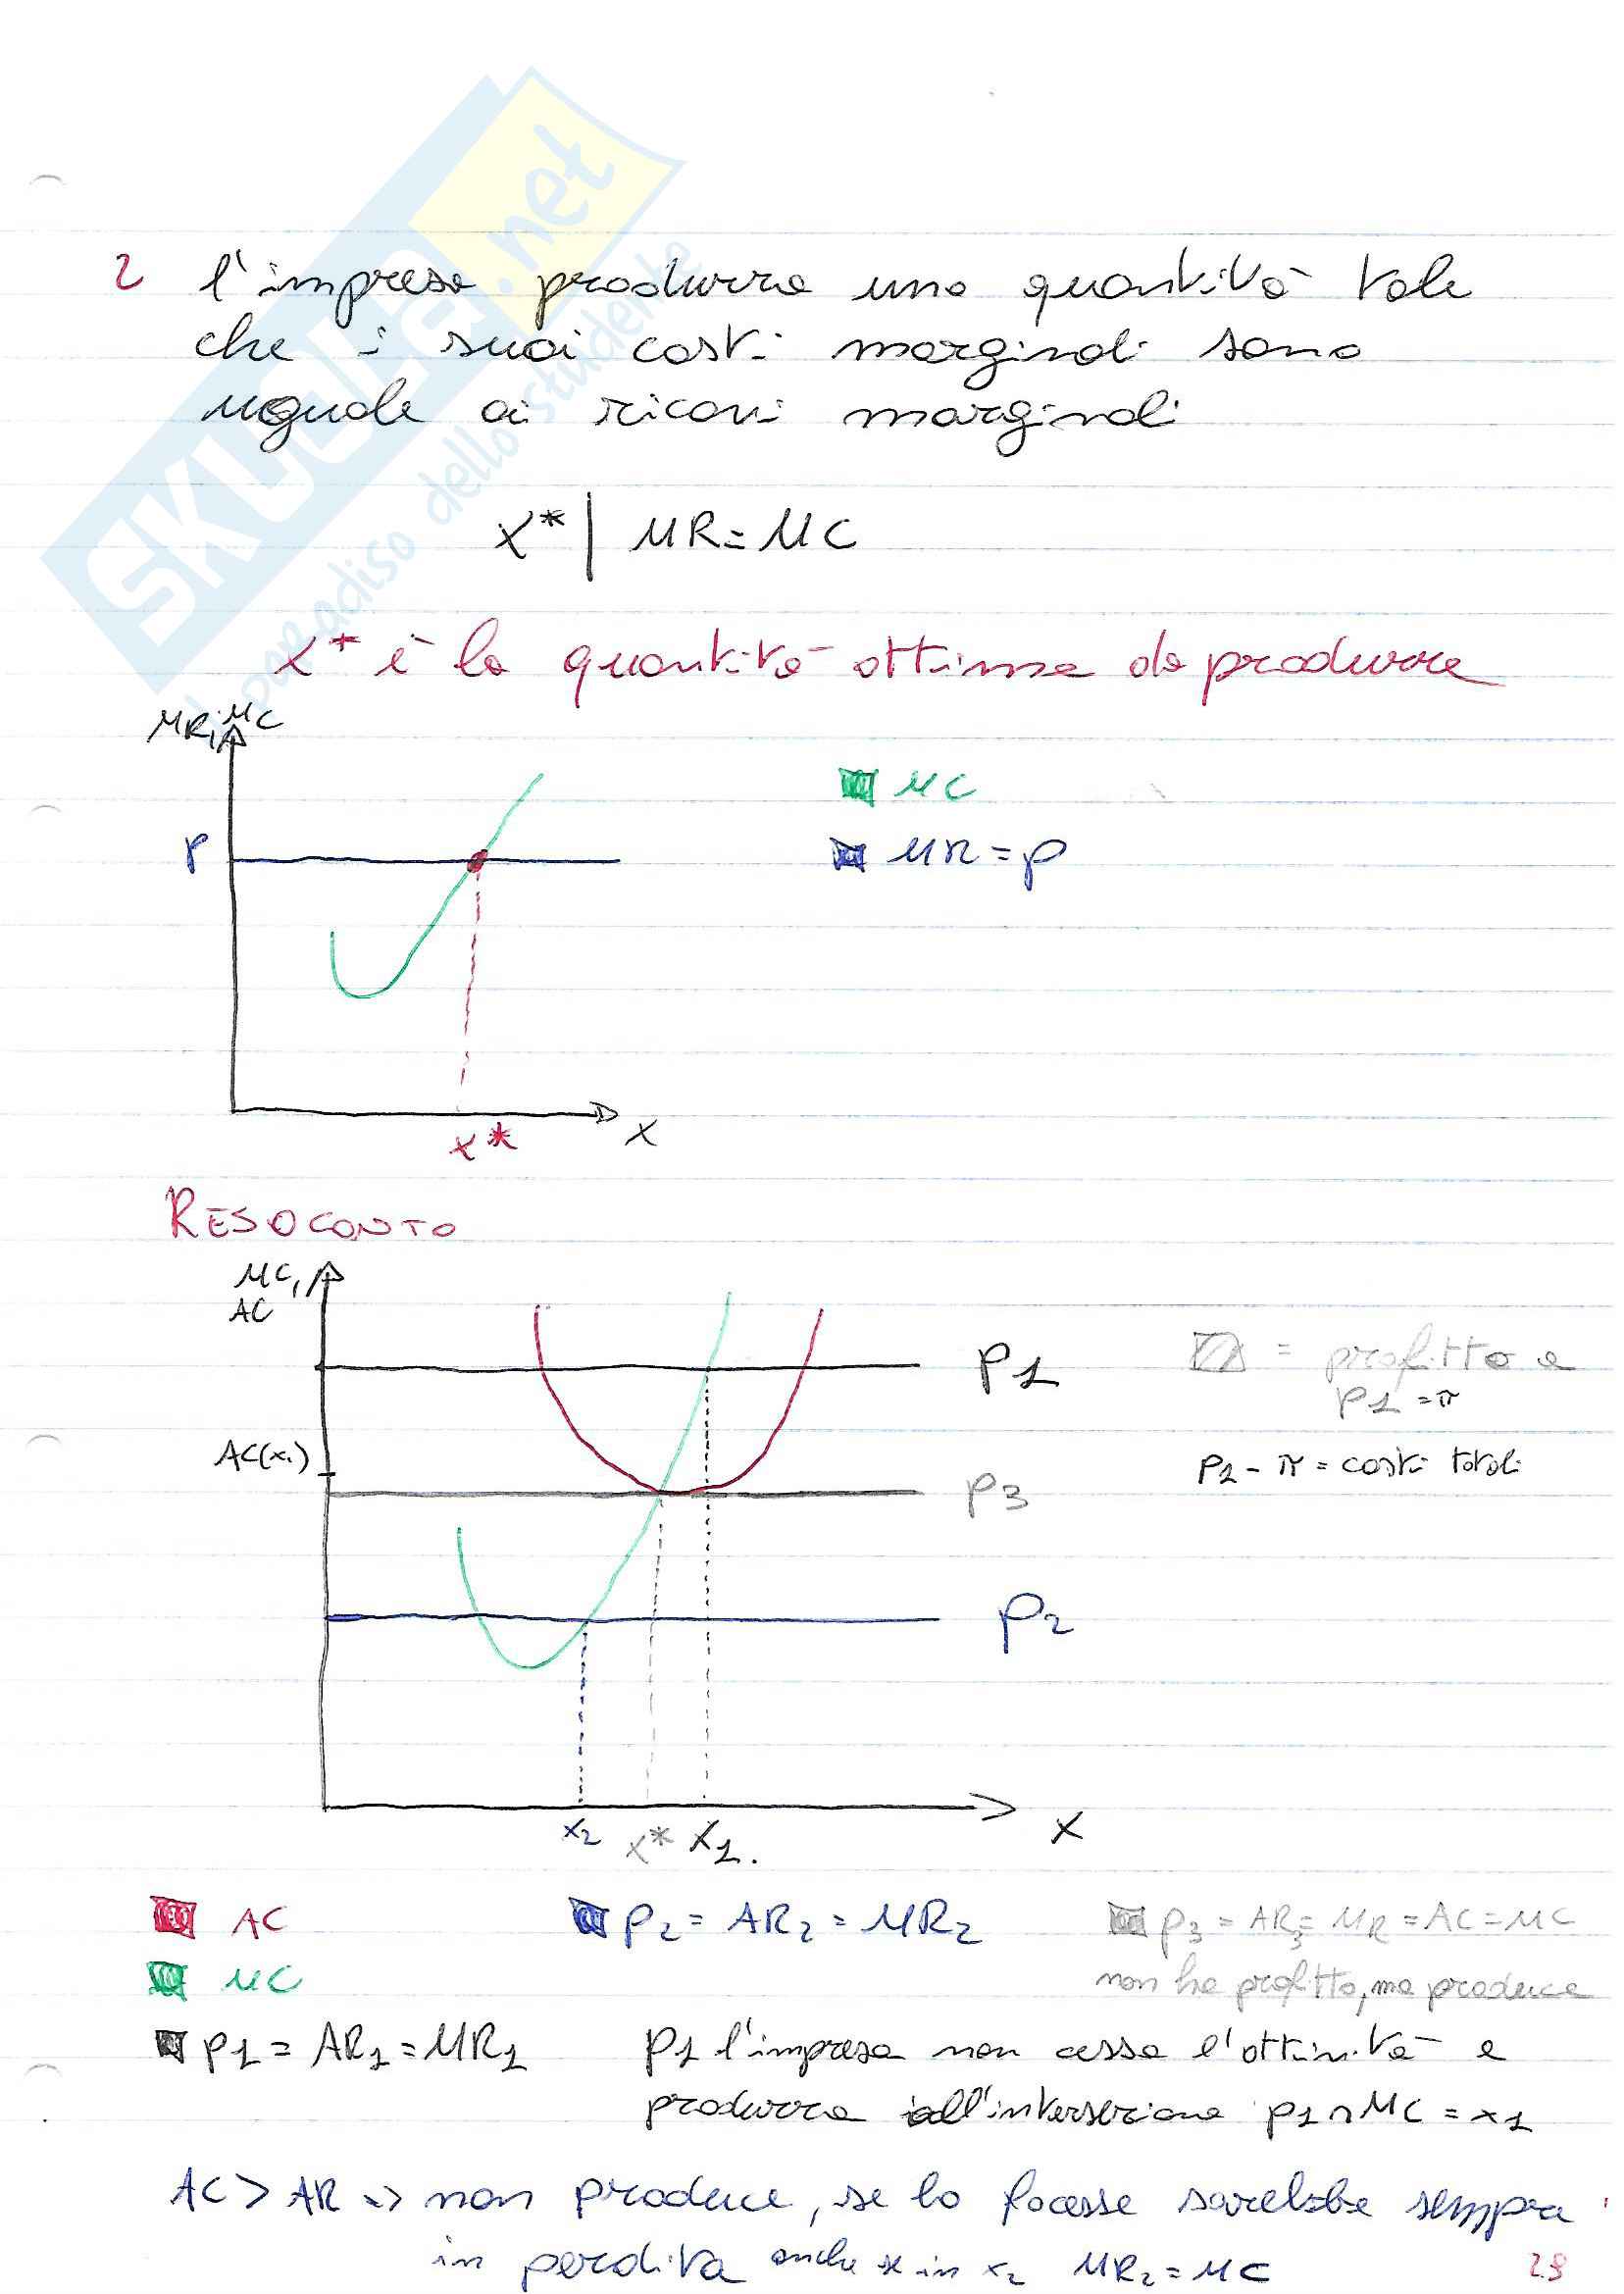 SKUOLA.net
il paradiso dello studente
2 l'impresa produrra una quantità tale
che i suoi costi marginali sono
uguale ai ricavi marginali
x* | MR = MC
x* è la quantità ottima da produrre
MR, MC
MC
p
MR = p
x
x*
RESOCONTO
MC,
AC
p1
= profitto e
p1 = π
AC(x1)
p1 - π = costi totali
p3
p2
x2 x* x1.
x
AC
p2 = AR2 = MR2
p3 = AR3 = MR = AC = MC
MC
non ha profitto, ma produce
p1 = AR1 = MR1
p1 l'impresa non cessa l'attività e
produrra all'interserzione p1 ∩ MC = x1
AC > AR => non produce, se lo facesse sarebbe sempre
in perdita anche in x2 MR2 = MC